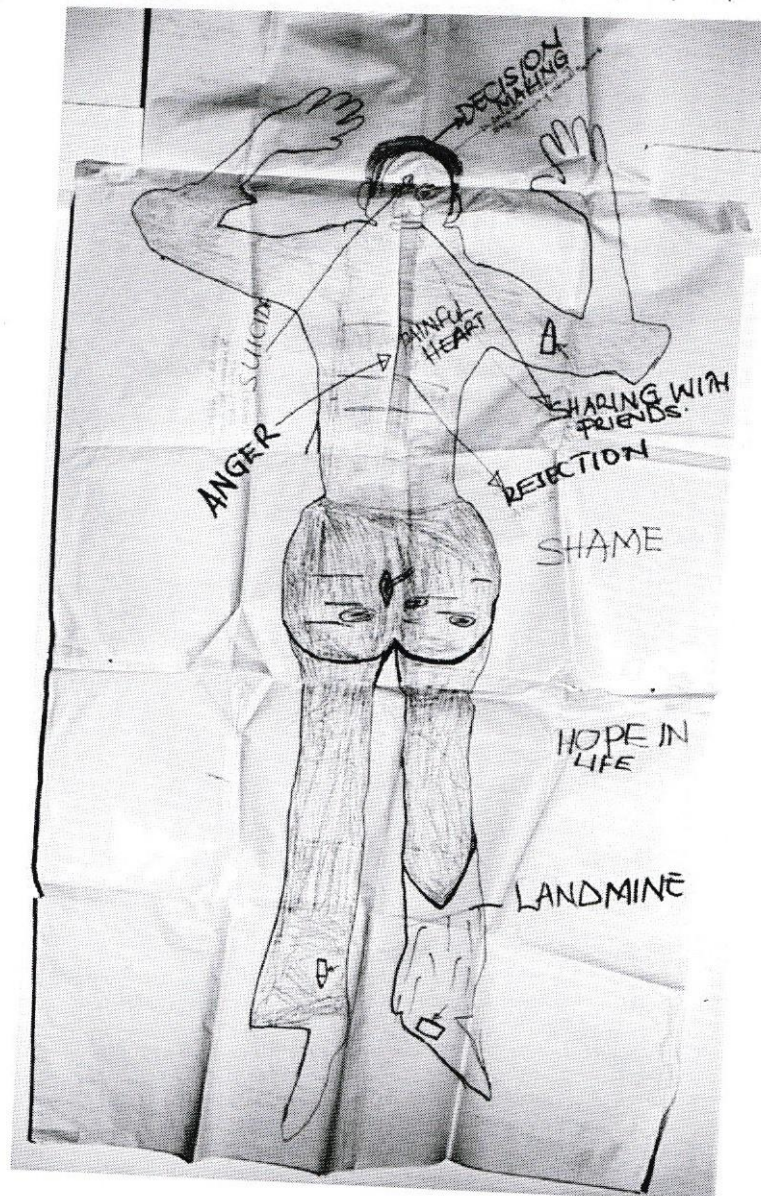 DECISION
MAKING
SUICIDE
PAINFUL
HEART
ANGER
SHARING WITH
FRIENDS.
REJECTION
SHAME
HOPE IN
LIFE
LANDMINE